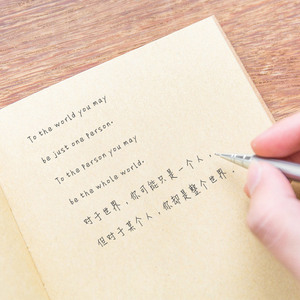 To the world you may
be just one person.
To the person you may
be the whole world.
对于世界，你可能只是一个人，
但对于某个人，你却是整个世界。